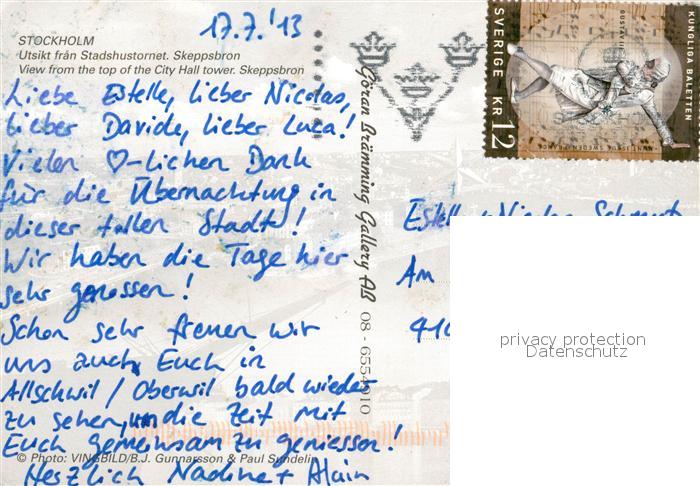 17.7.'13
STOCKHOLM
Utsikt från Stadshustornet. Skeppsbron
View from the top of the City Hall tower. Skeppsbron
Liebe Estelle, lieber Nicolas,
lieber Davide, lieber Luca!
Vielen ♡-lichen Dank
für die Übernachtung in
dieser tollen Stadt!
Wir haben die Tage hier
sehr genossen!
Schon sehr freuen wir
uns auch Euch in
Allschwil / Oberwil bald wieder
zu sehen, um die Zeit mit
Euch gemeinsam zu geniessen!
Herzlich Nadine + Alain
© Photo: VINGBILD/B.J. Gunnarsson & Paul Sundelin
Göran Brämming Gallery AB 08 - 6554010
SVERIGE KR 12
KUNGLIGA BALETTEN
Am
privacy protection
Datenschutz